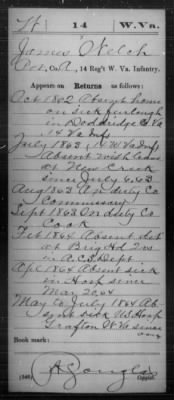 W | 14 | W. Va.
James Welch
Pvt, Co. A, 14 Reg't W. Va. Infantry.
Appears on Returns as follows:
Oct 1862 Absent home
on sick furlough
in Doddridge Co Va
14 Va Inf
July 1863, 14 W Va Inf
Absent with leave
at New Creek
since July 6, 63
Aug 1863 On duty Co
Commissary
Sept 1863 On duty Co
Cook
Feb 1864 Absent det
at Brig Hd Qrs
in A.C.S. Dept.
Apl 1864 Absent sick
in Hosp since
Mar 20, 64
May to July 1864 Ab
sent sick US Hosp
Grafton W Va since
Book mark:
(546)
Copyist.